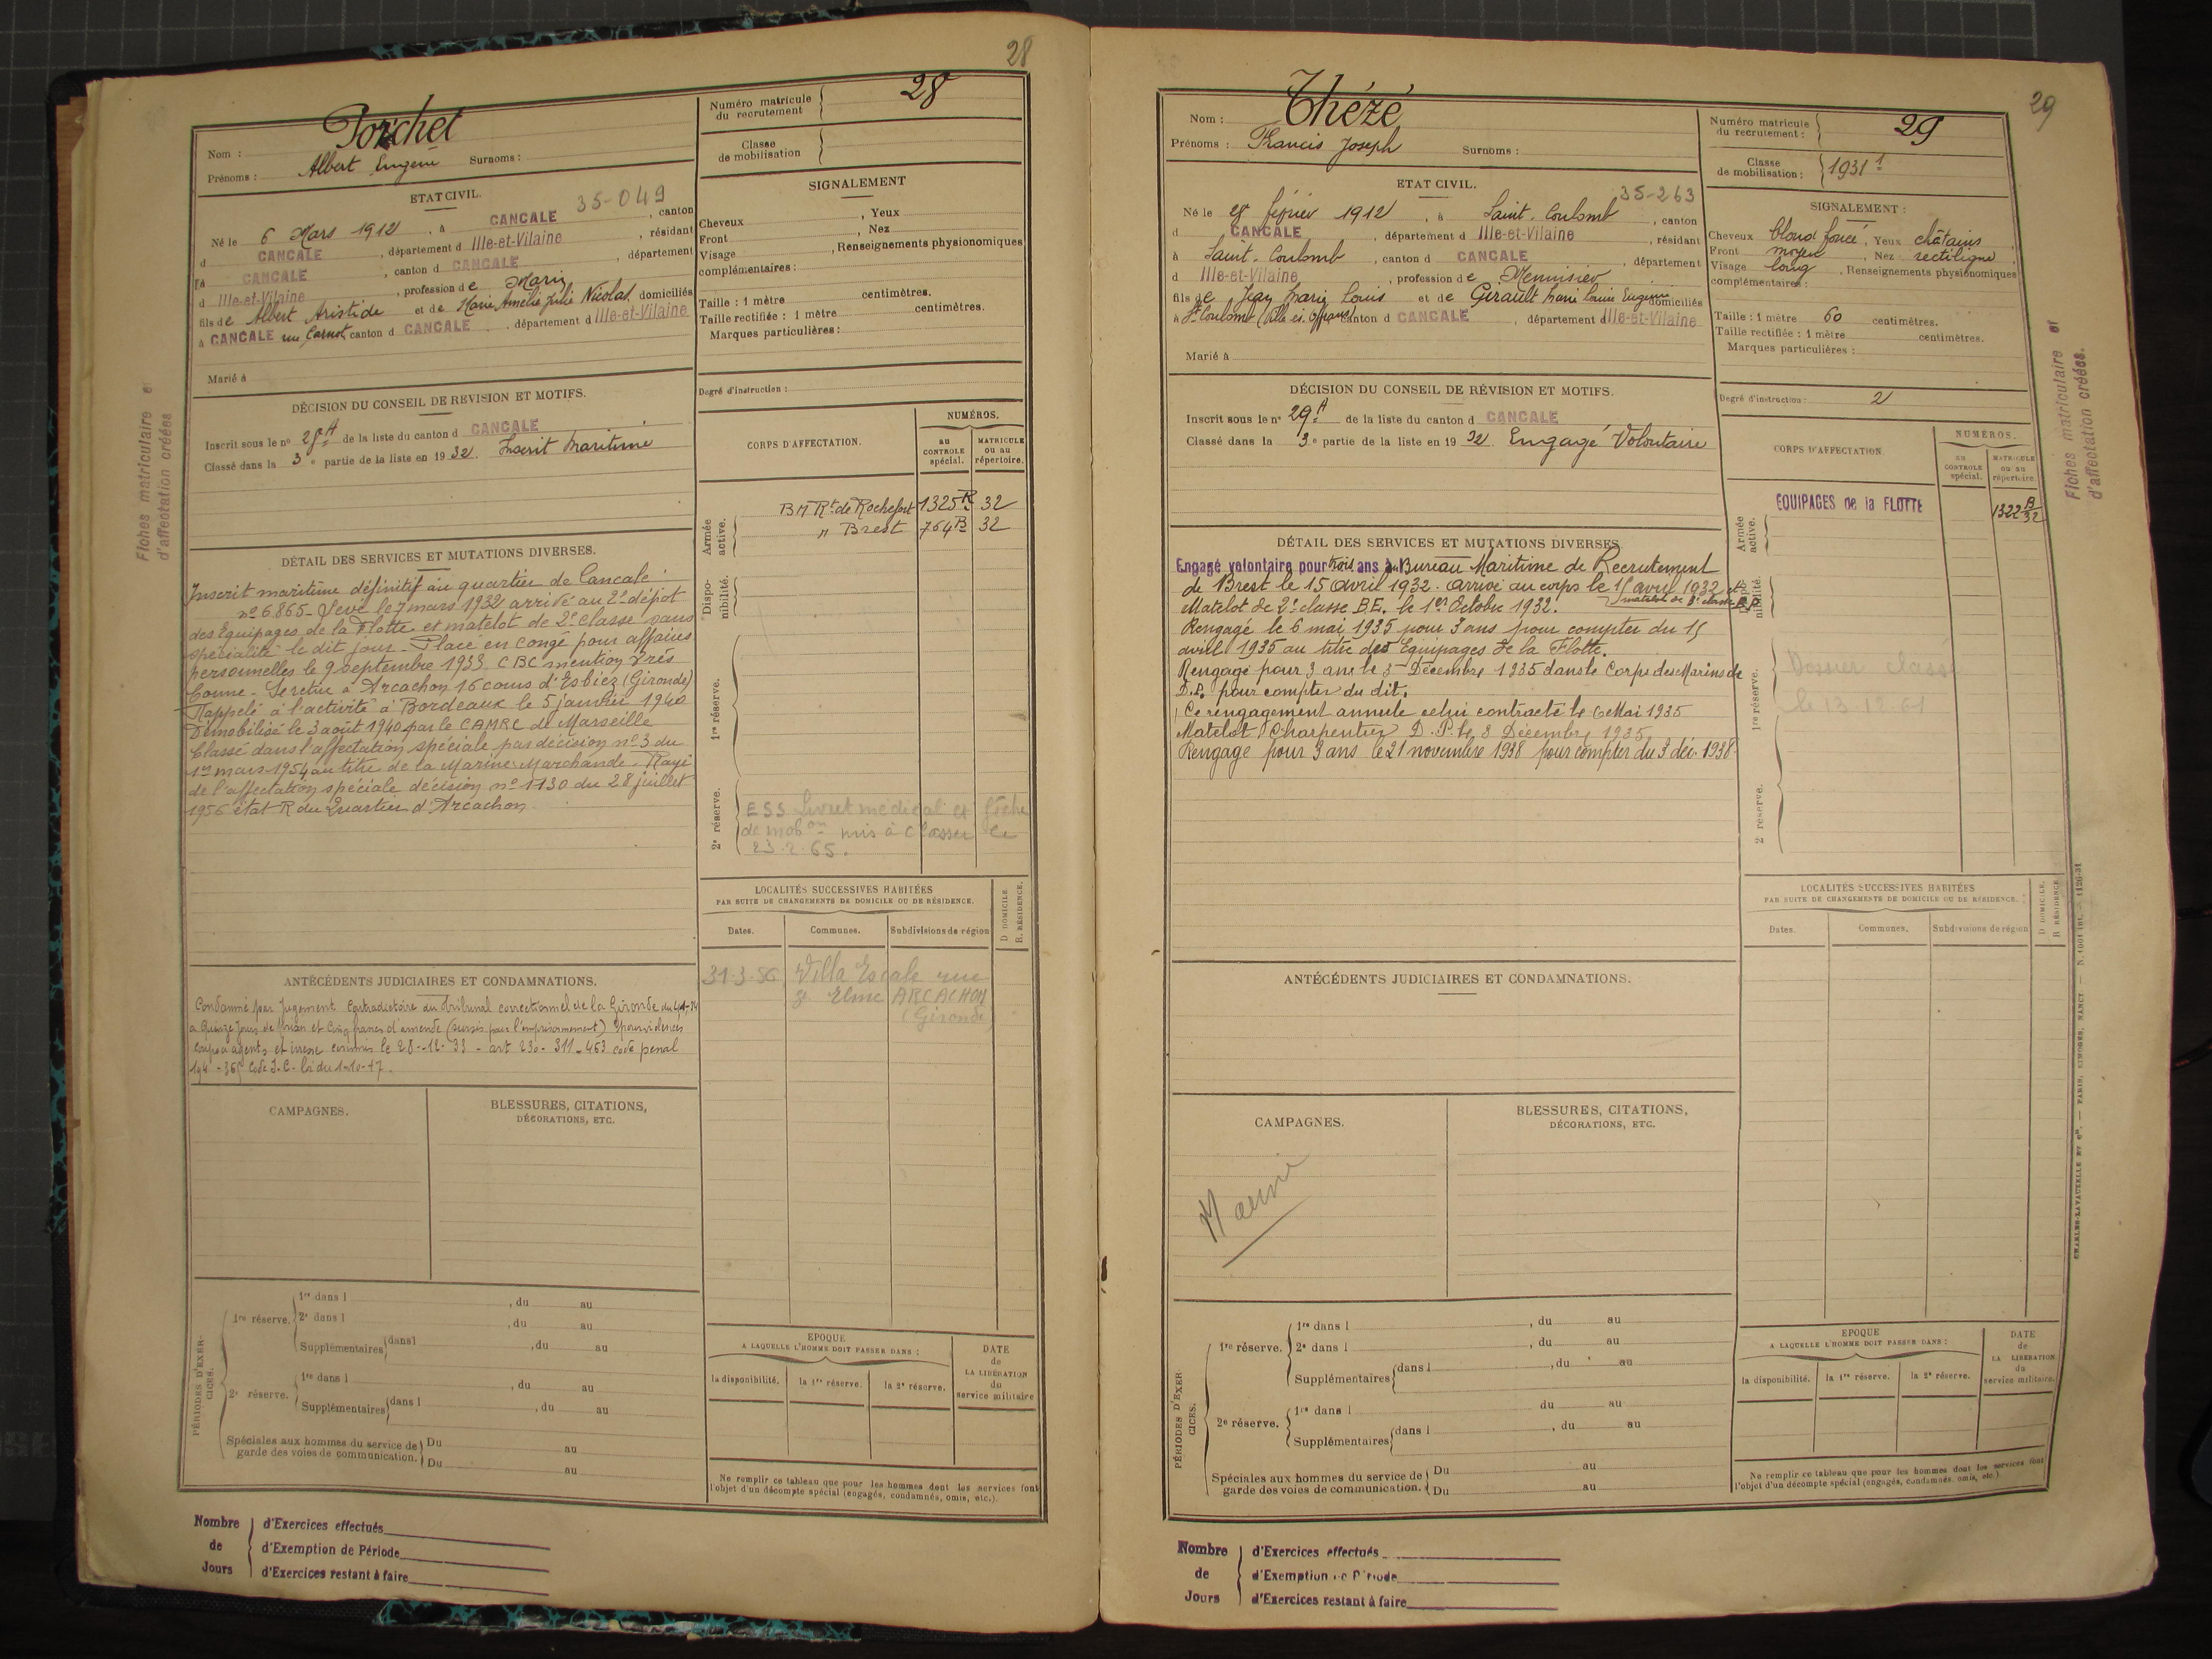 28
Porchet
Nom :
Prénoms : Albert Eugène Surnoms :
Numéro matricule du recrutement 28
Classe de mobilisation
ETAT CIVIL.
35-049
Né le 6 Mars 1912, à CANCALE, canton
d CANCALE, département d Ille-et-Vilaine, résidant
à CANCALE, canton d CANCALE, département
d Ille-et-Vilaine, profession de Marin
fils de Albert Aristide et de Marie Amélie Julie Nicolas domiciliés
à CANCALE rue Carnot canton d CANCALE département d Ille-et-Vilaine
Marié à
SIGNALEMENT
Cheveux , Yeux
Front , Nez
Visage , Renseignements physionomiques
complémentaires :
Taille : 1 mètre centimètres.
Taille rectifiée : 1 mètre centimètres.
Marques particulières :
Degré d'instruction :
Fiches matriculaire e
d'affectation créées
DÉCISION DU CONSEIL DE RÉVISION ET MOTIFS.
Inscrit sous le n° 28 A de la liste du canton d CANCALE
Classé dans la 3e partie de la liste en 1932. Inscrit Maritime
CORPS D'AFFECTATION.
NUMÉROS.
au CONTROLE spécial.
MATRICULE ou au répertoire.
Armée active.
BM Rt de Rochefort 1325 R 32
" Brest 764 B 32
Disponibilité.
1re réserve.
2e réserve.
ESS Livret médical et fiche
de mobon mis à classer le
23.2.65.
DÉTAIL DES SERVICES ET MUTATIONS DIVERSES.
Inscrit maritime définitif au quartier de Cancale
n° 6865. Levé le 7 mars 1932 arrivé au 2e dépôt
des Equipages de la Flotte et matelot de 2e classe sans
spécialité le dit jour. Placé en congé pour affaires
personnelles le 9 septembre 1933 CBC mention Très
Bonne. Se retire à Arcachon 16 cours d' (Gironde)
Rappelé à l'activité à Bordeaux le 5 janvier 1940
Démobilisé le 3 août 1940 par le CAMRC de Marseille
Classé dans l'affectation spéciale par décision n° 3 du
1er mars 1954 au titre de la Marine Marchande. Rayé
de l'affectation spéciale décision n° 1130 du 28 juillet
1956 état R du Quartier d'Arcachon
LOCALITÉS SUCCESSIVES HABITÉES
PAR SUITE DE CHANGEMENTS DE DOMICILE OU DE RÉSIDENCE.
D DOMICILE
R. RÉSIDENCE.
Dates. Communes. Subdivisions de région
31-3-56 Villa Escale rue
St Elme ARCACHON
(Gironde)
ANTÉCÉDENTS JUDICIAIRES ET CONDAMNATIONS.
Condamné par Jugement Contradictoire du Tribunal correctionnel de la Gironde du
à Quinze jours de Prison et Cinq francs d'amende (sursis pour l'emprisonnement) pour violences
coups à agents et ivresse commis le 28-12-33 - art 230-311-463 code penal
194-365 Code I.C. loi du 1-10-17.
CAMPAGNES.
BLESSURES, CITATIONS,
DÉCORATIONS, ETC.
PÉRIODES D'EXERCICES.
1re réserve. 1re dans l , du au
2e dans l , du au
Supplémentaires dans l , du au
2e réserve. 1re dans l , du au
Supplémentaires dans l , du au
Spéciales aux hommes du service de garde des voies de communication. Du au
Du au
EPOQUE
A LAQUELLE L'HOMME DOIT PASSER DANS :
la disponibilité. la 1re réserve. la 2e réserve.
DATE de LA LIBÉRATION du service militaire
Ne remplir ce tableau que pour les hommes dont les services font
l'objet d'un décompte spécial (engagés, condamnés, omis, etc.).
Nombre de Jours
d'Exercices effectués
d'Exemption de Période
d'Exercices restant à faire
29
Nom : Thézé
Prénoms : Francis Joseph Surnoms :
Numéro matricule du recrutement : 29
Classe de mobilisation : 1931 1
ETAT CIVIL.
35-263
Né le 28 février 1912, à Saint-Coulomb, canton
d CANCALE, département d Ille-et-Vilaine, résidant
à Saint-Coulomb, canton d CANCALE, département
d Ille-et-Vilaine, profession de Menuisier
fils de Jean Marie Louis et de Gérault Marie Louise Eugénie domiciliés
à St Coulomb canton d CANCALE, département d Ille-et-Vilaine
Marié à
SIGNALEMENT :
Cheveux blond foncé, Yeux châtains
Front moyen, Nez rectiligne
Visage long, Renseignements physionomiques
complémentaires :
Taille : 1 mètre 60 centimètres.
Taille rectifiée : 1 mètre centimètres.
Marques particulières :
Degré d'instruction : 2
Fiches matriculaire et
d'affectation créées.
DÉCISION DU CONSEIL DE RÉVISION ET MOTIFS.
Inscrit sous le n° 29 A de la liste du canton d CANCALE
Classé dans la 3e partie de la liste en 1932 Engagé Volontaire
CORPS D'AFFECTATION
NUMÉROS.
au CONTROLE spécial.
MATRICULE ou au répertoire.
Armée active.
EQUIPAGES de la FLOTTE 1322 B 32
Disponibilité.
1re réserve.
Dossier classé
le 13.12.61
2e réserve.
DÉTAIL DES SERVICES ET MUTATIONS DIVERSES
Engagé volontaire pour trois ans au Bureau Maritime de Recrutement
de Brest le 15 avril 1932. arrivé au corps le 15 avril 1932 et
matelot de 3e classe
Matelot de 2e classe B.E. le 1er Octobre 1932.
Rengagé le 6 mai 1935 pour 3 ans pour compter du 15
avril 1935 au titre des Equipages de la Flotte.
Rengagé pour 3 ans le 3 Décembre 1935 dans le Corps des Marins de
D.P. pour compter du dit.
Ce rengagement annule celui contracté le 6 Mai 1935
Matelot Charpentier D.P. le 3 Décembre 1935
Rengagé pour 3 ans le 21 novembre 1938 pour compter du 3 déc. 1938
LOCALITÉS SUCCESSIVES HABITÉES
PAR SUITE DE CHANGEMENTS DE DOMICILE OU DE RÉSIDENCE.
D DOMICILE,
R RÉSIDENCE.
Dates. Communes. Subdivisions de région
ANTÉCÉDENTS JUDICIAIRES ET CONDAMNATIONS.
CAMPAGNES.
Marine
BLESSURES, CITATIONS,
DÉCORATIONS, ETC.
PÉRIODES D'EXERCICES.
1re réserve. 1re dans l , du au
2e dans l , du au
Supplémentaires dans l , du au
2e réserve. 1re dans l du au
Supplémentaires dans l , du au
Spéciales aux hommes du service de garde des voies de communication. Du au
Du au
EPOQUE
A LAQUELLE L'HOMME DOIT PASSER DANS :
la disponibilité. la 1re réserve. la 2e réserve.
DATE de LA LIBÉRATION du service militaire.
Ne remplir ce tableau que pour les hommes dont les services font
l'objet d'un décompte spécial (engagés, condamnés, omis, etc.).
CHARLES-LAVAUZELLE ET Cie. — PARIS, LIMOGES, NANCY
Nombre de Jours
d'Exercices effectués
d'Exemption de Période
d'Exercices restant à faire